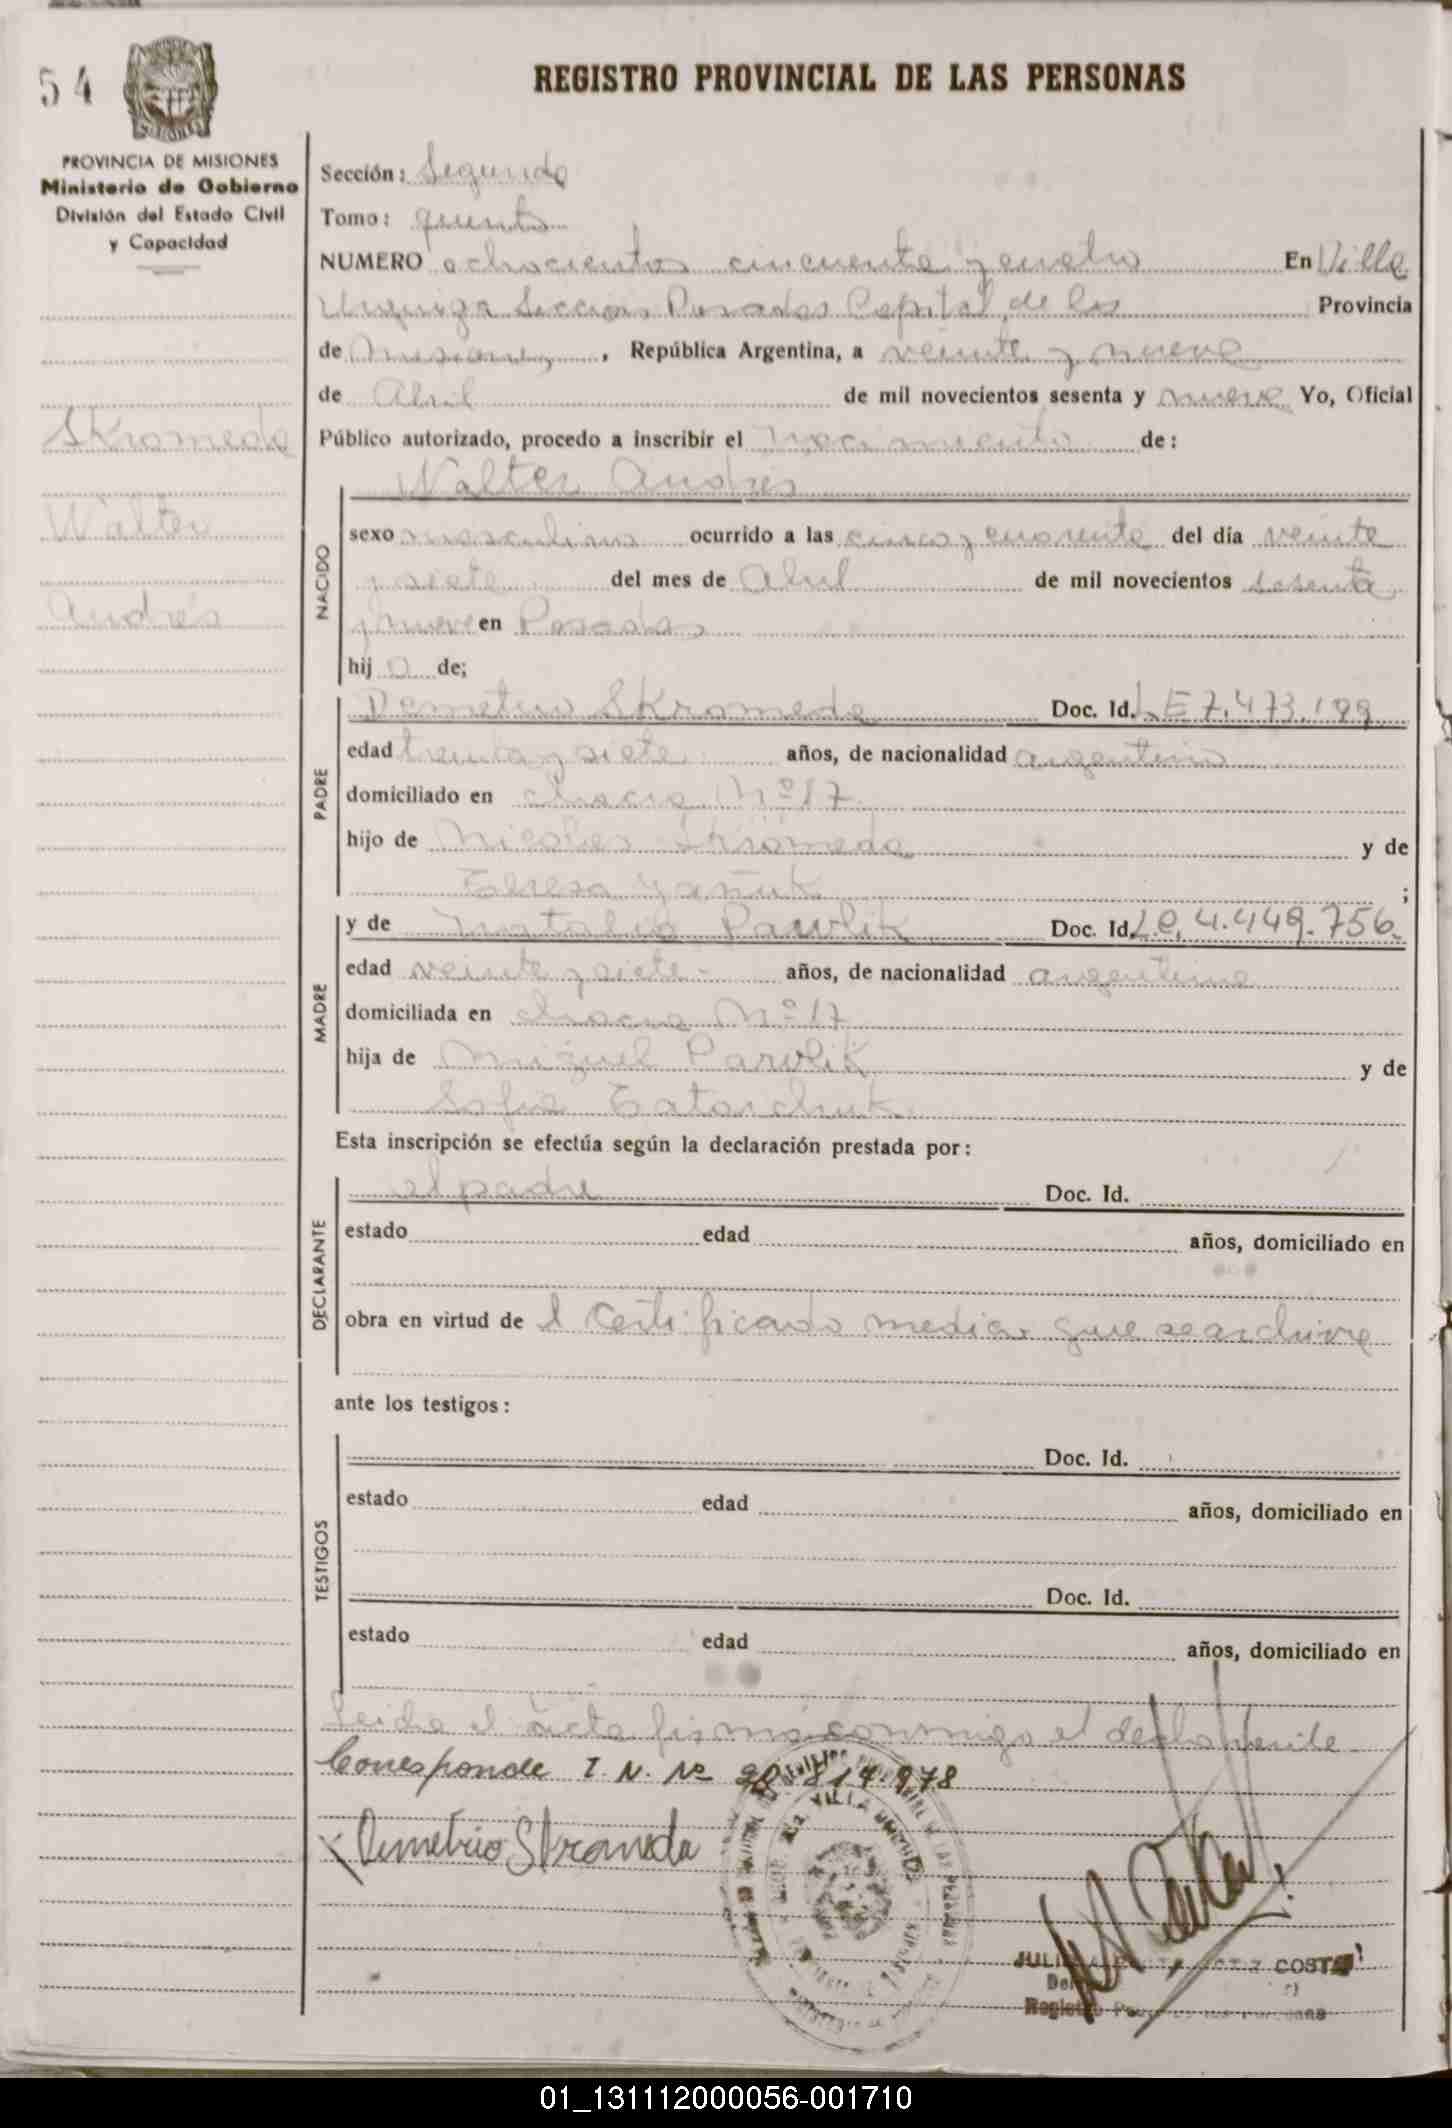 54
REGISTRO PROVINCIAL DE LAS PERSONAS
PROVINCIA DE MISIONES
Ministerio de Gobierno
División del Estado Civil
y Capacidad
Skromeda
Walter
Andrés
Sección: Segunda
Tomo: quinto
NUMERO ochocientos cincuenta y cuatro En Villa
Urquiza Seccion Posadas Capital de las Provincia
de Misiones, República Argentina, a veinte y nueve
de Abril de mil novecientos sesenta y nueve Yo, Oficial
Público autorizado, procedo a inscribir el nacimiento de:
Walter Andrés
NACIDO
sexo masculino ocurrido a las cinco y cuarenta del día veinte
y siete del mes de Abril de mil novecientos sesenta
y nueve en Posadas
hijo de;
PADRE
Demetrio Skromeda Doc. Id. L E 7.473.199
edad treinta y siete años, de nacionalidad argentino
domiciliado en chacra Nº 17
hijo de Nicolas Skromeda y de
Teresa Yañuk ;
MADRE
y de Natalia Pawlik Doc. Id. L.C. 4.449.756.
edad veinte y siete- años, de nacionalidad argentina
domiciliada en chacra Nº 17
hija de Miguel Pawlik y de
Sofia Tatarchuk
Esta inscripción se efectúa según la declaración prestada por:
DECLARANTE
el padre Doc. Id.
estado edad años, domiciliado en
obra en virtud de l Certificado medico que se archiva
ante los testigos:
TESTIGOS
Doc. Id.
estado edad años, domiciliado en
Doc. Id.
estado edad años, domiciliado en
Leida el acta firma conmigo el declarante
Corresponde I. N. Nº 20.817.978
Demetrio Skromeda
VILLA URQUIZA
COSTA
Registro
01_131112000056-001710